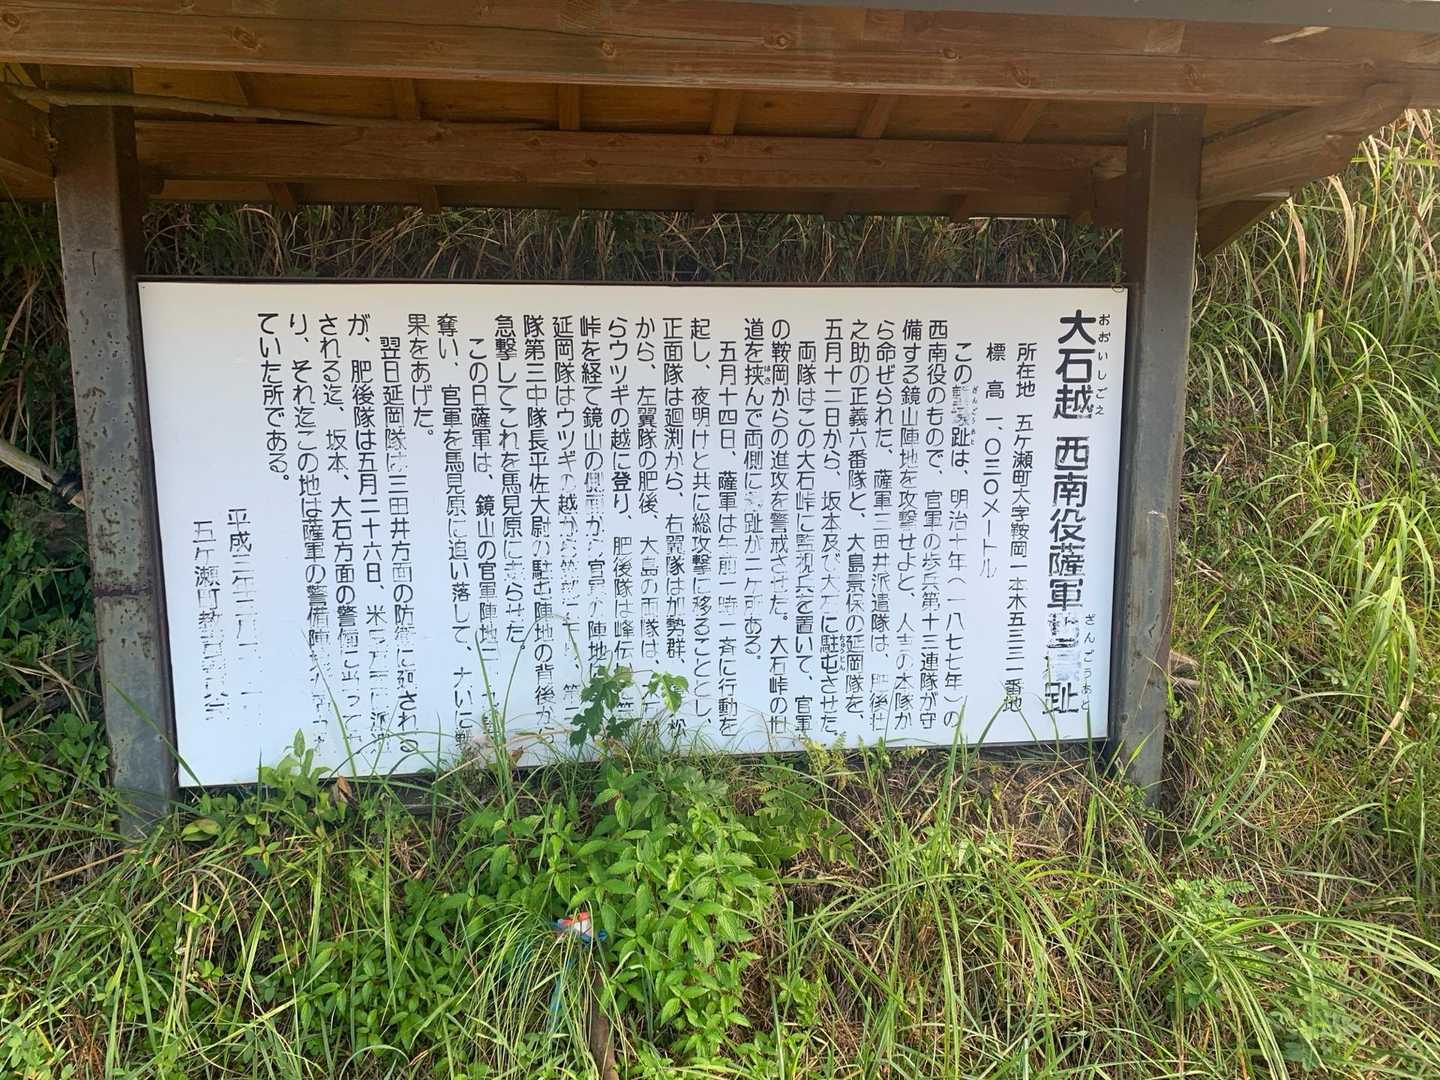 大石越 西南役薩軍 趾
おおいしごえ ざんごうあと
所在地 五ケ瀬町大字鞍岡一本木五三三一番地
標 高 一、〇三〇メートル
この 趾は、明治十年(一八七七年)の
ざんごうあと
西南役のもので、官軍の歩兵第十三連隊が守
備する鏡山陣地を攻撃せよと、人吉の本隊か
ら命ぜられた、薩軍三田井派遣隊は、肥後壮
之助の正義六番隊と、大島景保の延岡隊を、
五月十二日から、坂本及び大石に駐屯させた。
両隊はこの大石峠に監視兵を置いて、官軍
の鞍岡からの進攻を警戒させた。大石峠の旧
道を挟んで両側に 趾が二ケ所ある。
はさ
五月十四日、薩軍は午前一時一斉に行動を
起し、夜明けと共に総攻撃に移ることとし、
正面隊は廻渕から、右翼隊は加勢群、 松
から、左翼隊の肥後、大島の両隊は、
らウツギの越に登り、肥後隊は峰伝
峠を経て鏡山の側面から官軍の陣地に
延岡隊はウツギの越から
隊第三中隊長平佐大尉の駐屯陣地の背後か
急撃してこれを馬見原に走らせた。
この日薩軍は、鏡山の官軍陣地
奪い、官軍を馬見原に追い落して、大いに戦
果をあげた。
翌日延岡隊は三田井方面の防衛に される
が、肥後隊は五月二十六日、米 に派
される迄、坂本、大石方面の警備に当って
り、それ迄この地は薩軍の警備陣
ていた所である。
平成三年三月
五ケ瀬町教育委員会